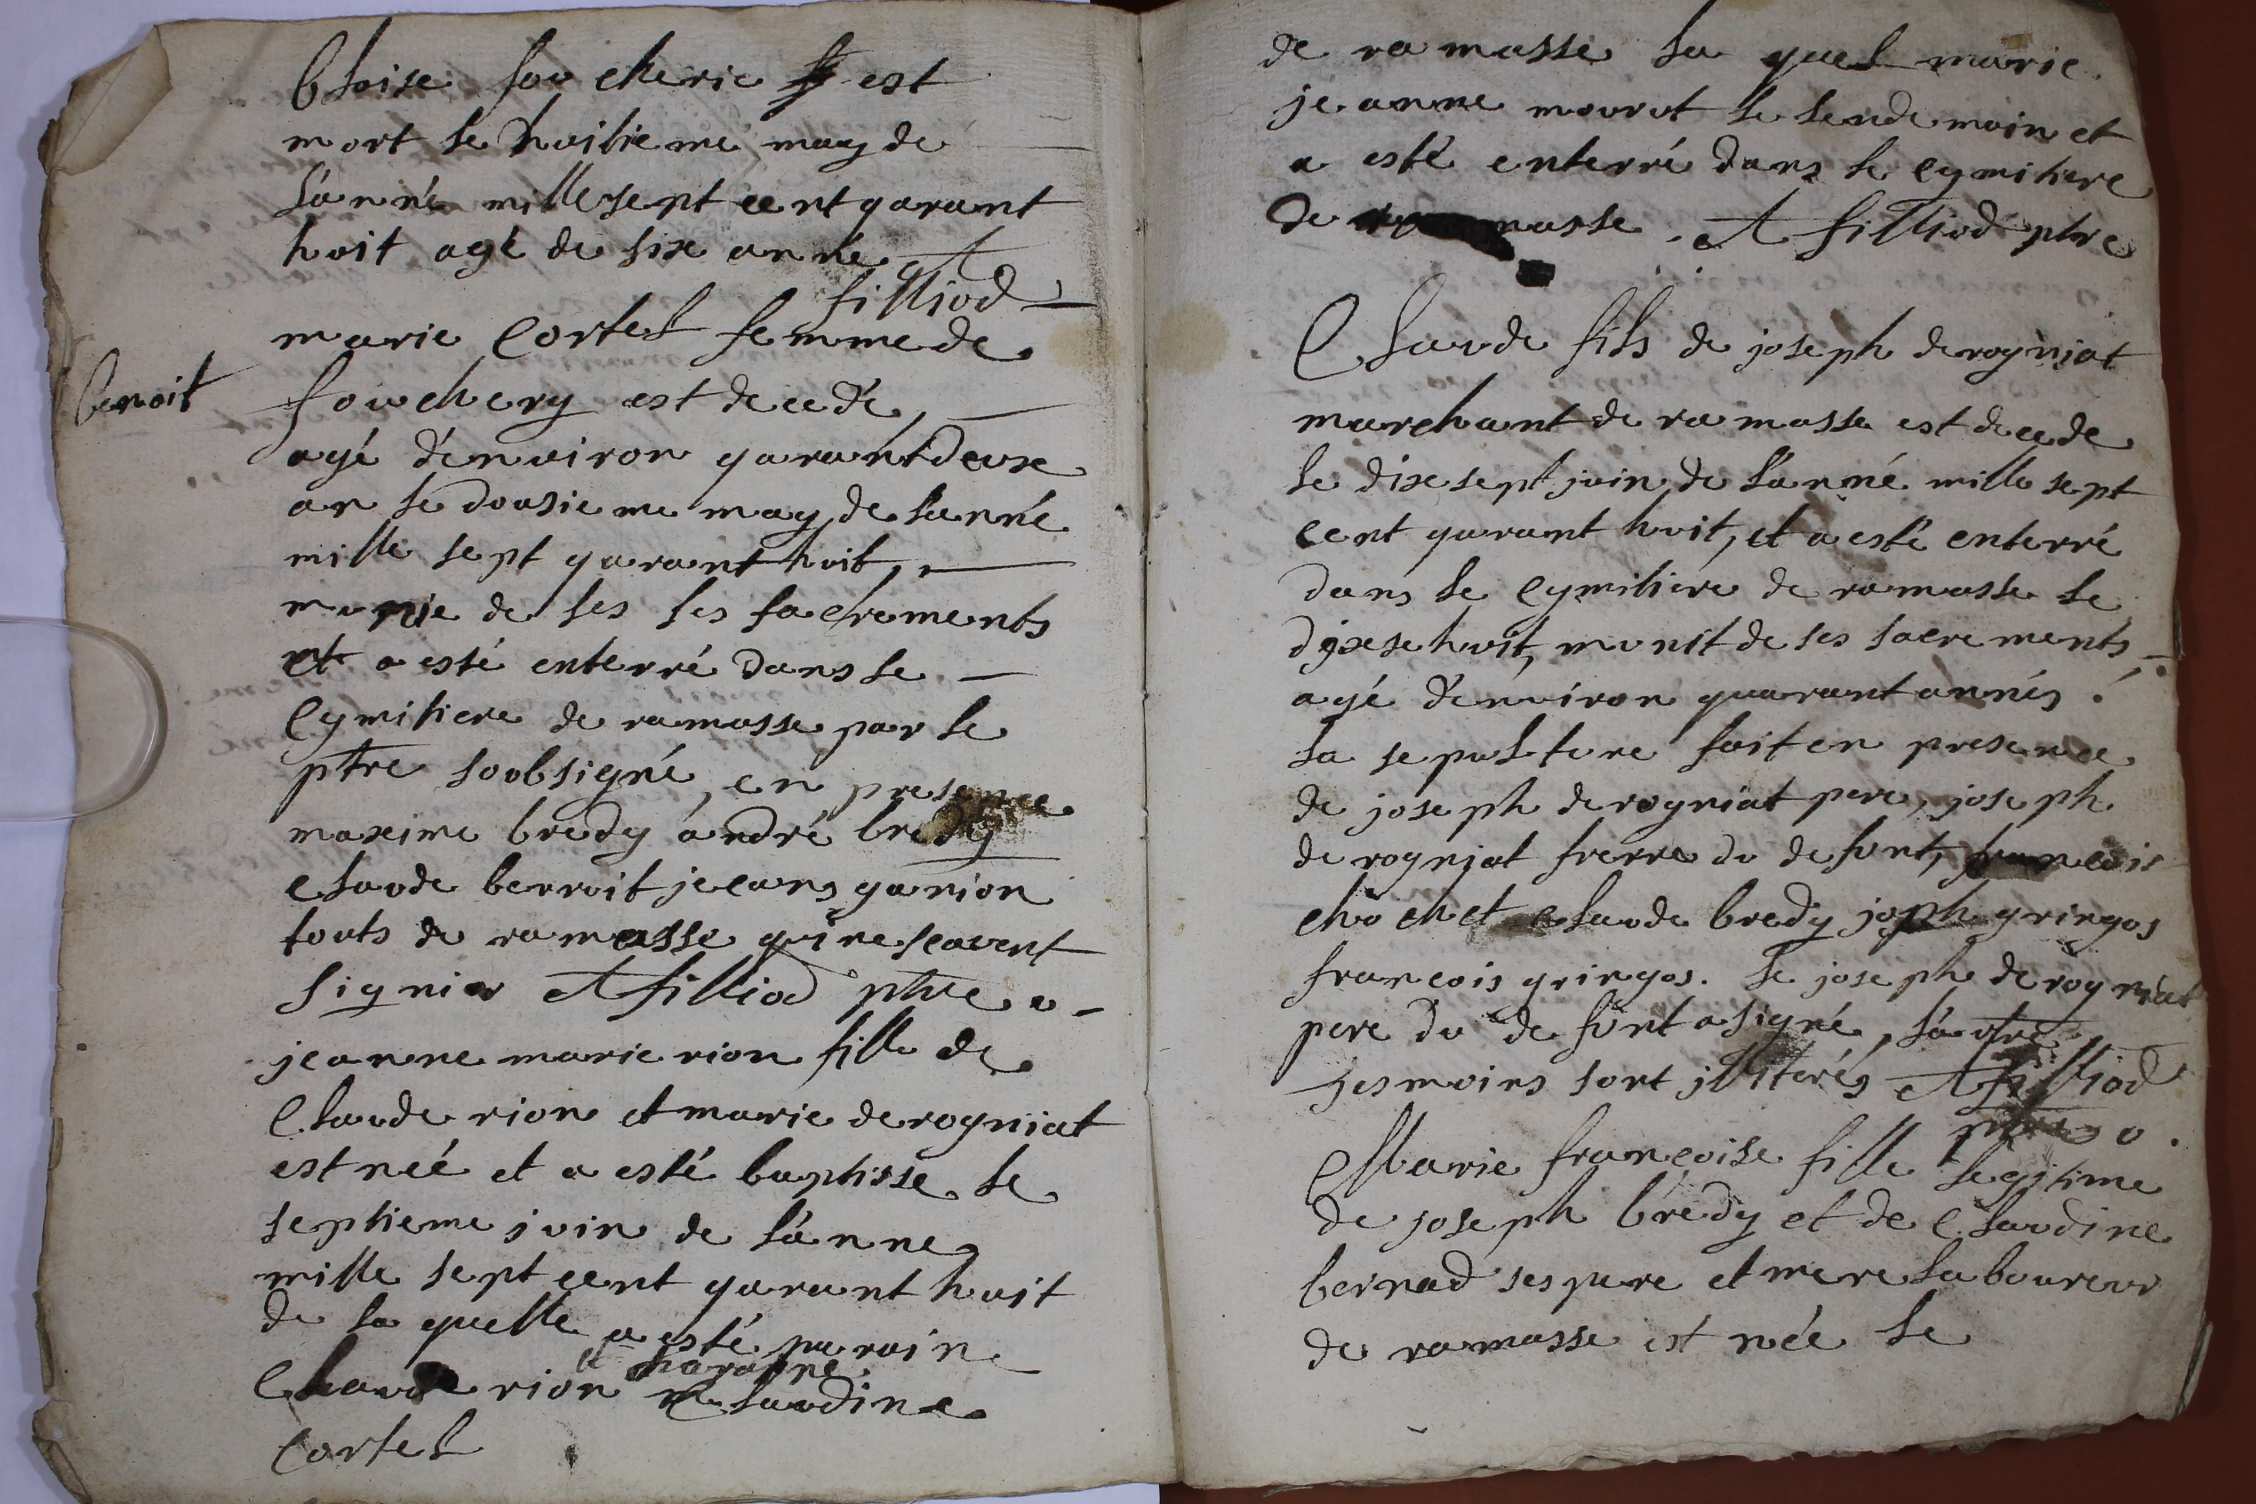 bloise foucherie est
mort le huitieme may de
l'anné mille sept cent qarant
huit agé de six année
A filliod
marie cortel femme de
benoit
fouchery est decedé,
agé d'environ qarant deux
an le dousieme may de lanné
mille sept qarant huit,
munie de ses ses sacrements
et a esté enterré dans le
cymitiere de ramasse par le
ptre soubsigné, en presence
maxime bredy andré bredy
claude benroit jeans ganion
touts de ramasse qui ne scavent
signier A filliod ptre v
jeanne marie rion fille de
claude rion et marie derogniat
est neé et a esté baptisse le
septieme juin de l'anne
mille sept cent qarant huit
de la quelle a esté parain
claude rion et maranne claudine
cortel
de ramasse la quel marie
jeanne mourut le lendemain et
a esté enterré dans le cymitiere
de masse. A filliod ptre
Claude fils de joseph derogniat
marchant de ramasse est decede
le dix sept juin de l'anné mille sept
cent qarant huit, et a esté enterré
dans le cymitiere de ramasse le
dixse huit, munit de ses sacrements,
agé d'environ quarant annés.
la sepulture fait en presence
de joseph derogniat pere, joseph
derogniat frerre du defunt, francois
chochet claude bredy joph gringos
francois gringos. le joseph derogniat
pere du defunt a signé, l'autre
tesmoins sont jlliterés A filliod
ptre v.
Marie francoise fille legitime
de joseph bredy et de claudine
bernad ses pere et mere laboureur
de ramasse est neé le